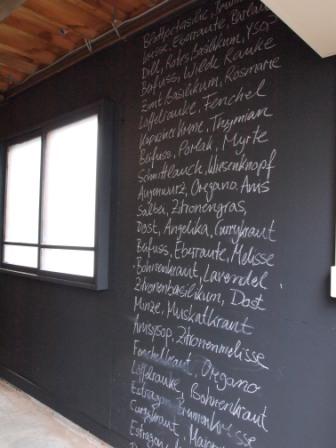 Blattpetersilie,
Eberraute,
Dill, Rotes Basilikum, Ysop
Beifuss, Wilde Rauke
Zimt Basilikum, Rosmarie
Löffelrauke, Fenchel
Kapuzinerkresse, Thymian
Beifuss, Portulak, Myrte
Schnittlauch, Wiesenknopf
Augenwurz, Oregano, Anis
Salbei, Zitronengras,
Dost, Angelika, Currykraut
Beifuss, Eberraute, Melisse
Bohnenkraut, Lavendel
Zitronenbasilikum, Dost
Minze, Muskatkraut
Anisysop, Zitronenmelisse
Fenchelkraut, Oregano
Löffelrauke, Bohnenkraut
Estragon, Brunnenkresse
Currykraut,
Estragon,